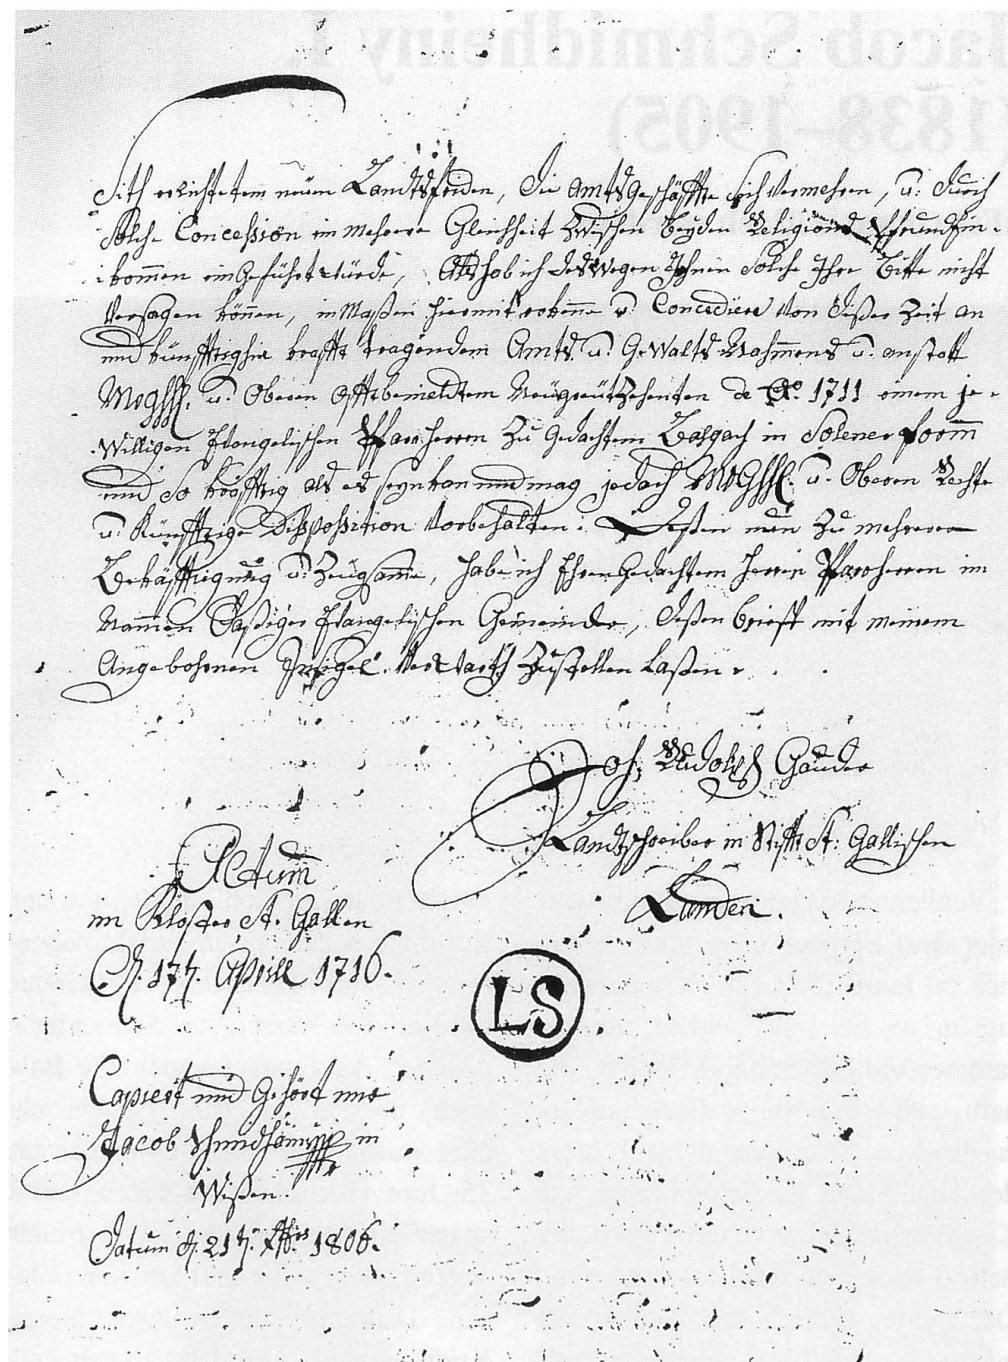 Sith erlichtetem neüen Landtsfriden, die Amts Geschäffte sich Vermehren, u: durch
Solche Concession in mehrere Gleichheit Zwischen beyden Religions Pfrundein-
kommen eingeführt würde, Alß hab ich deswegen Ihnen Solche Ihre Bitte nicht
Versagen können, in Maßen hiermit erkenne u. Concediere Von dißer Zeit an
und künfftighin krafft tragendem Ambts u. Gewalts Nahmmens u. anstatt
MrGhhl. u. Oberen offtbemeldtem Neügreützehenten de Ao. 1711 einem je-
Willigen Evangelischen Pfarrherren Zu Gedachtem Balgach in Solener formm
und So kräfftig als es seyn kan und mag jedoch MrGhhl. u. Oberen Rechte
u. Künfftige Dissposition Vorbehalten. Deßen nun Zu mehrerer
Bekräfftigung u. Zeügsamme, habe ich Ehren Gedachtem Herren Pfarrherren im
Nammen daßiger Evangelischen Gemeinde, deßen brieff mit meinem
Angebohrnen Insigel Verwarth Zustellen Laßen.
Joh: Rudolff Gauder
Landtschreiber in Stifft St: Gallischen
Landen.
Actum
im Kloster St. Gallen
d. 17t. Aprill 1716.
LS
Capiert und Gehört mir
Jacob Schmidhäiny in
Wißen.
Datum d. 21t. 1806.